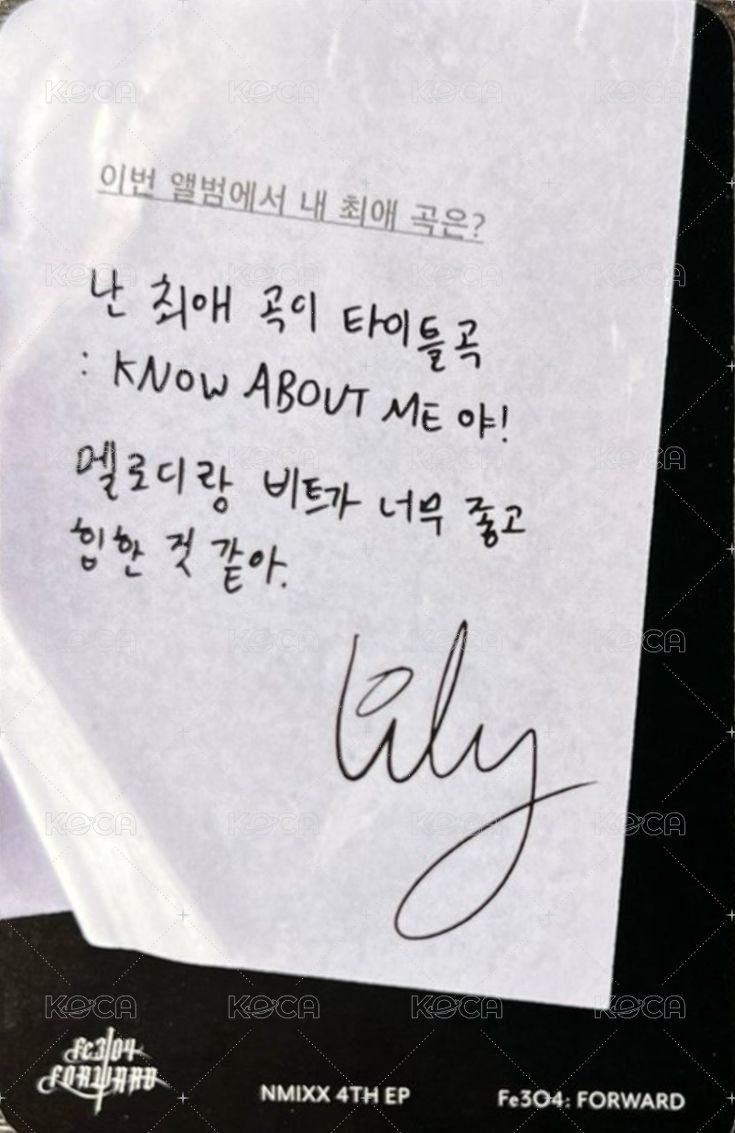 이번 앨범에서 내 최애 곡은?
난 최애 곡이 타이틀곡
: KNOW ABOUT ME 야!
멜로디랑 비트가 너무 좋고
힙한 것 같아.
Lily
Fe3O4
FORWARD
NMIXX 4TH EP
Fe3O4: FORWARD
KOCA